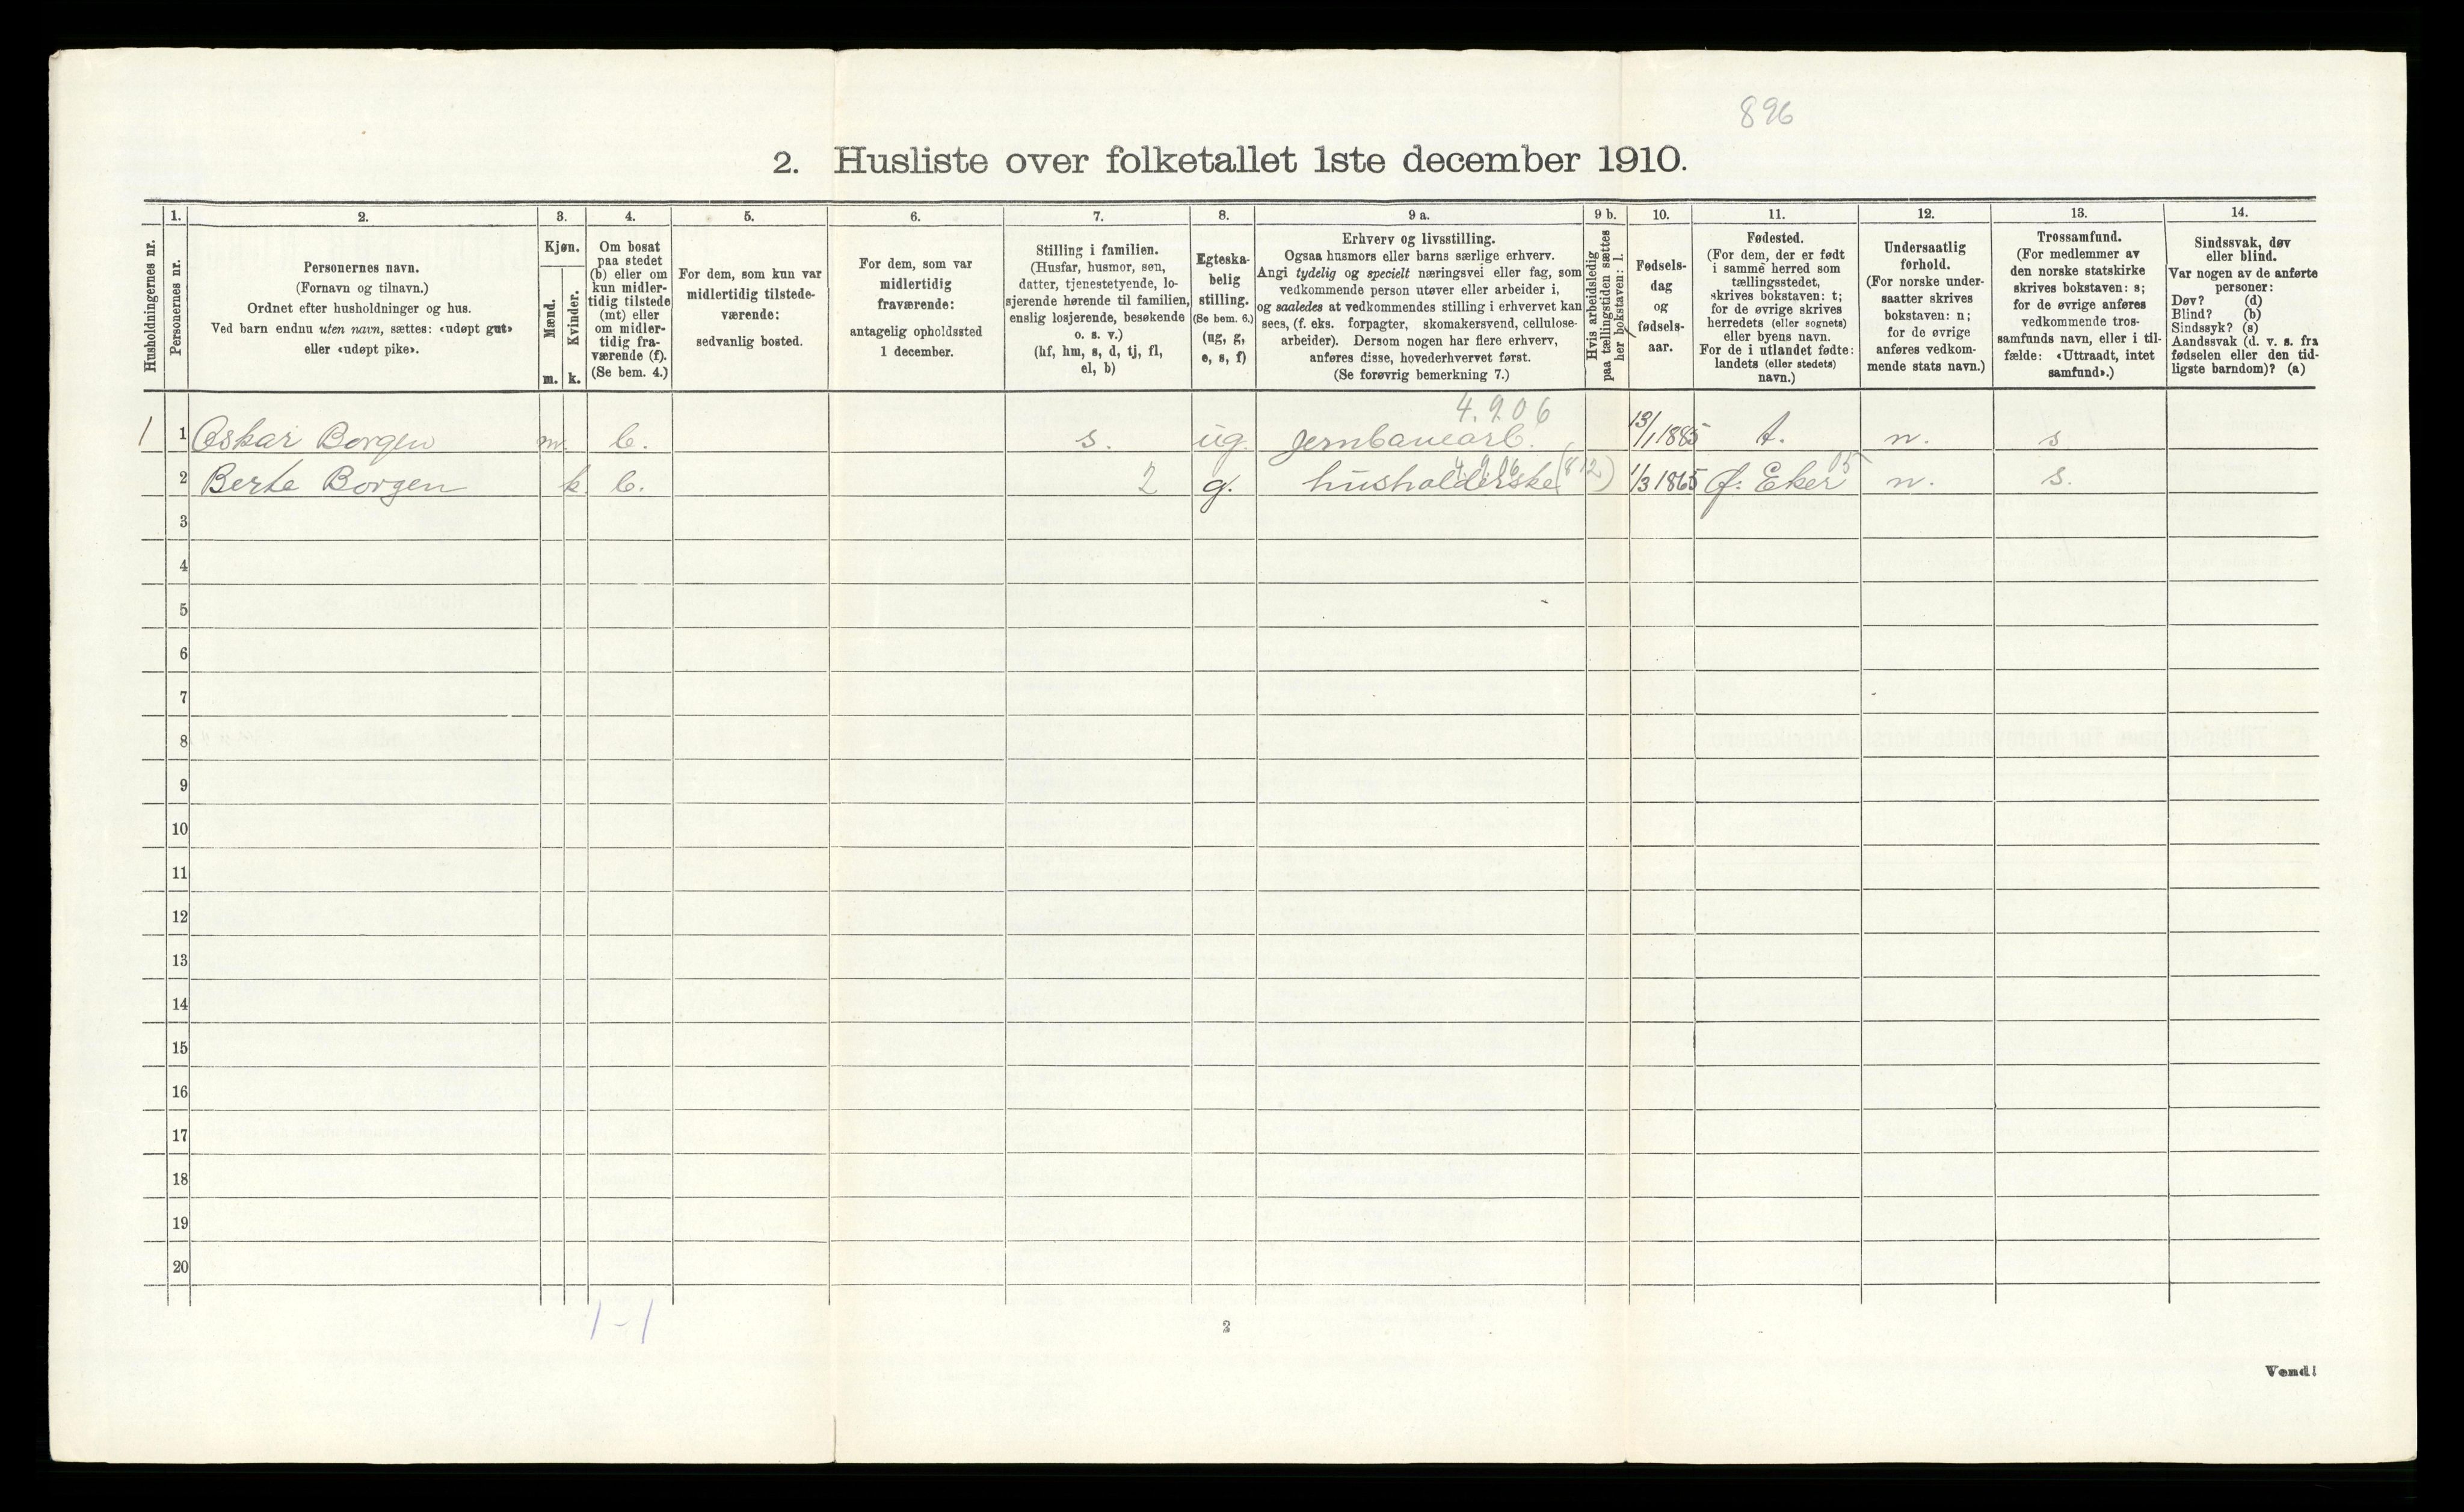 896
2. Husliste over folketallet 1ste december 1910.
Husholdningernes nr.
1.
Personernes nr.
2.
Personernes navn.
(Fornavn og tilnavn.)
Ordnet efter husholdninger og hus.
Ved barn endnu uten navn, sættes: «udøpt gut»
eller «udøpt pike».
3.
Kjøn.
Mænd.
Kvinder.
m. k.
4.
Om bosat
paa stedet
(b) eller om
kun midler-
tidig tilstede
(mt) eller
om midler-
tidig fra-
værende (f).
(Se bem. 4.)
5.
For dem, som kun var
midlertidig tilstede-
værende:
sedvanlig bosted.
6.
For dem, som var
midlertidig
fraværende:
antagelig opholdssted
1 december.
7.
Stilling i familien.
(Husfar, husmor, søn,
datter, tjenestetyende, lo-
sjerende hørende til familien,
enslig losjerende, besøkende
o. s. v.)
(hf, hm, s, d, tj, fl,
el, b)
8.
Egteska-
belig
stilling.
(Se bem. 6.)
(ug, g,
e, s, f)
9 a.
Erhverv og livsstilling.
Ogsaa husmors eller barns særlige erhverv.
Angi tydelig og specielt næringsvei eller fag, som
vedkommende person utøver eller arbeider i,
og saaledes at vedkommendes stilling i erhvervet kan
sees, (f. eks. forpagter, skomakersvend, cellulose-
arbeider). Dersom nogen har flere erhverv,
anføres disse, hovederhvervet først.
(Se forøvrig bemerkning 7.)
9 b.
Hvis arbeidsledig
paa tællingstiden sættes
her bokstaven: l.
10.
Fødsels-
dag
og
fødsels-
aar.
11.
Fødested.
(For dem, der er født
i samme herred som
tællingsstedet,
skrives bokstaven: t;
for de øvrige skrives
herredets (eller sognets)
eller byens navn.
For de i utlandet fødte:
landets (eller stedets)
navn.)
12.
Undersaatlig
forhold.
(For norske under-
saatter skrives
bokstaven: n;
for de øvrige
anføres vedkom-
mende stats navn.)
13.
Trossamfund.
(For medlemmer av
den norske statskirke
skrives bokstaven: s;
for de øvrige anføres
vedkommende tros-
samfunds navn, eller i til-
fælde: «Uttraadt, intet
samfund».)
14.
Sindssvak, døv
eller blind.
Var nogen av de anførte
personer:
Døv? (d)
Blind? (b)
Sindssyk? (s)
Aandssvak (d. v. s. fra
fødselen eller den tid-
ligste barndom)? (a)
4.906
1 1 Oskar Borgen m. b. s. ug. jernbanearb. 13/1 1885 t. n. s
2 Berte Borgen k. b. 2 g. husholderske (812) 1/3 1865 Ø. Eker 05 n. s.
3
4
5
6
7
8
9
10
11
12
13
14
15
16
17
18
19
20
1-1
2
Vend!